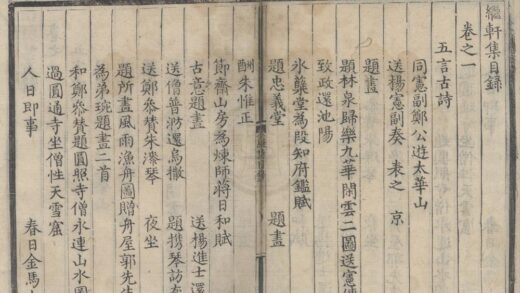 繼軒集目録
卷之一
五言古詩
同憲副鄭公遊太華山
送楊憲副奏表之京
題畫
題林泉歸樂九華閑雲二圖送憲使
致政還池陽
氷蘗堂為段知府鑑賦
題忠義堂 題畫
酬朱惟正
節齋山房為煉師蔣日和賦
古意題畫 送楊進士還
送僧普渺還烏撒 題携琴訪友
送鄭叅賛朱漆琴 夜坐
題所畫風雨漁舟圖贈舟屋郭先生
為弟琬題畫二首
和鄭叅賛題圓照寺僧永連山水圖
過圓通寺坐僧性天雪窟
人日即事 春日金馬山